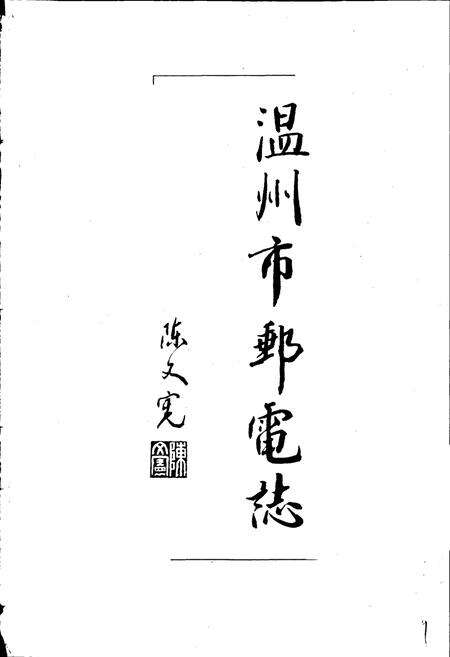 温州市郵電誌
陈文宪
陳文憲